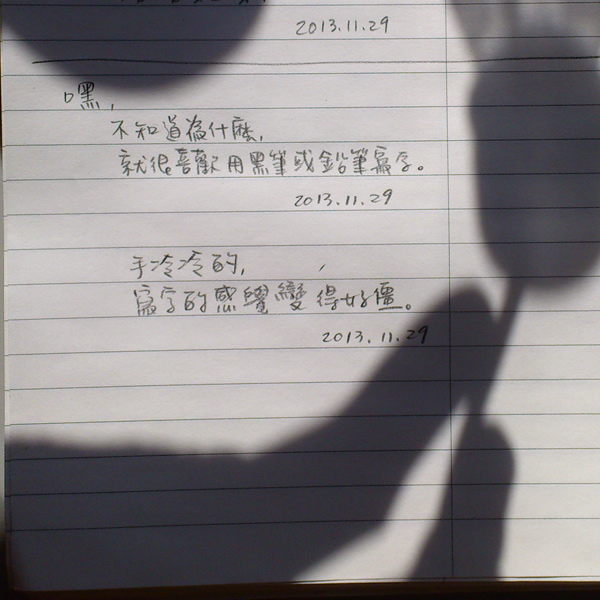 2013.11.29
嘿,
不知道為什麼,
就很喜歡用黑筆或鉛筆寫字。
2013.11.29
手冷冷的,
寫字的感覺變得好僵。
2013.11.29